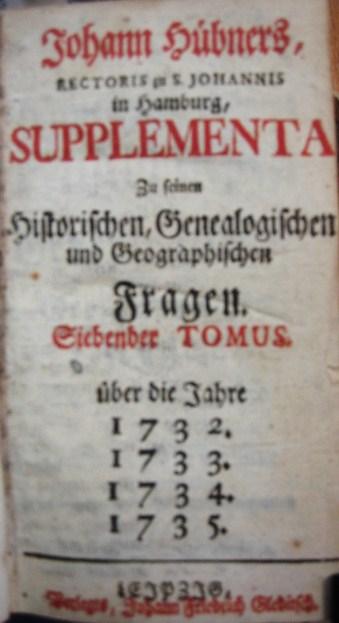 Johann Hübners,
RECTORIS zu S. JOHANNIS
in Hamburg,
SUPPLEMENTA
Zu seinen
Historischen, Genealogischen
und Geographischen
Fragen.
Siebender TOMUS.
über die Jahre
1732.
1733.
1734.
1735.
LEIPZIG,
Verlegts, Johann Friedrich Gleditsch.